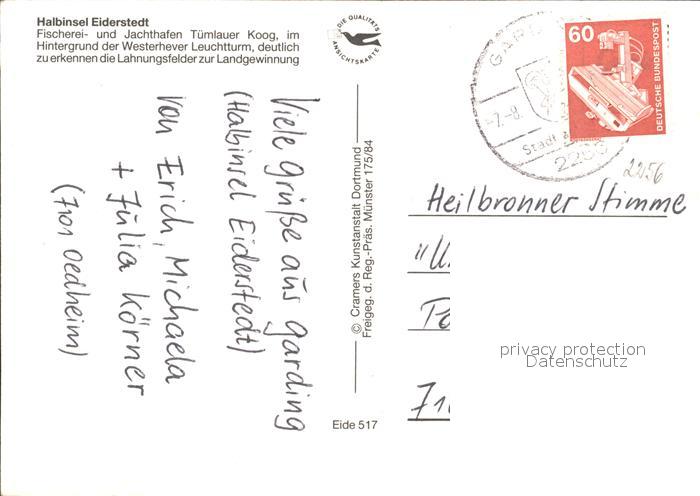 Halbinsel Eiderstedt
Fischerei- und Jachthafen Tümlauer Koog, im
Hintergrund der Westerhever Leuchtturm, deutlich
zu erkennen die Lahnungsfelder zur Landgewinnung
DIE QUALITÄTS
ANSICHTSKARTE
60
DEUTSCHE BUNDESPOST
-7.-8.
Stadt
2256
Viele Grüße aus Garding
(Halbinsel Eiderstedt)
von Erich, Michaela
+ Julia Körner
(7101 Oedheim)
© Cramers Kunstanstalt Dortmund
Freigeg. d. Reg.-Präs. Münster 175/84
Eide 517
Heilbronner Stimme
privacy protection
Datenschutz